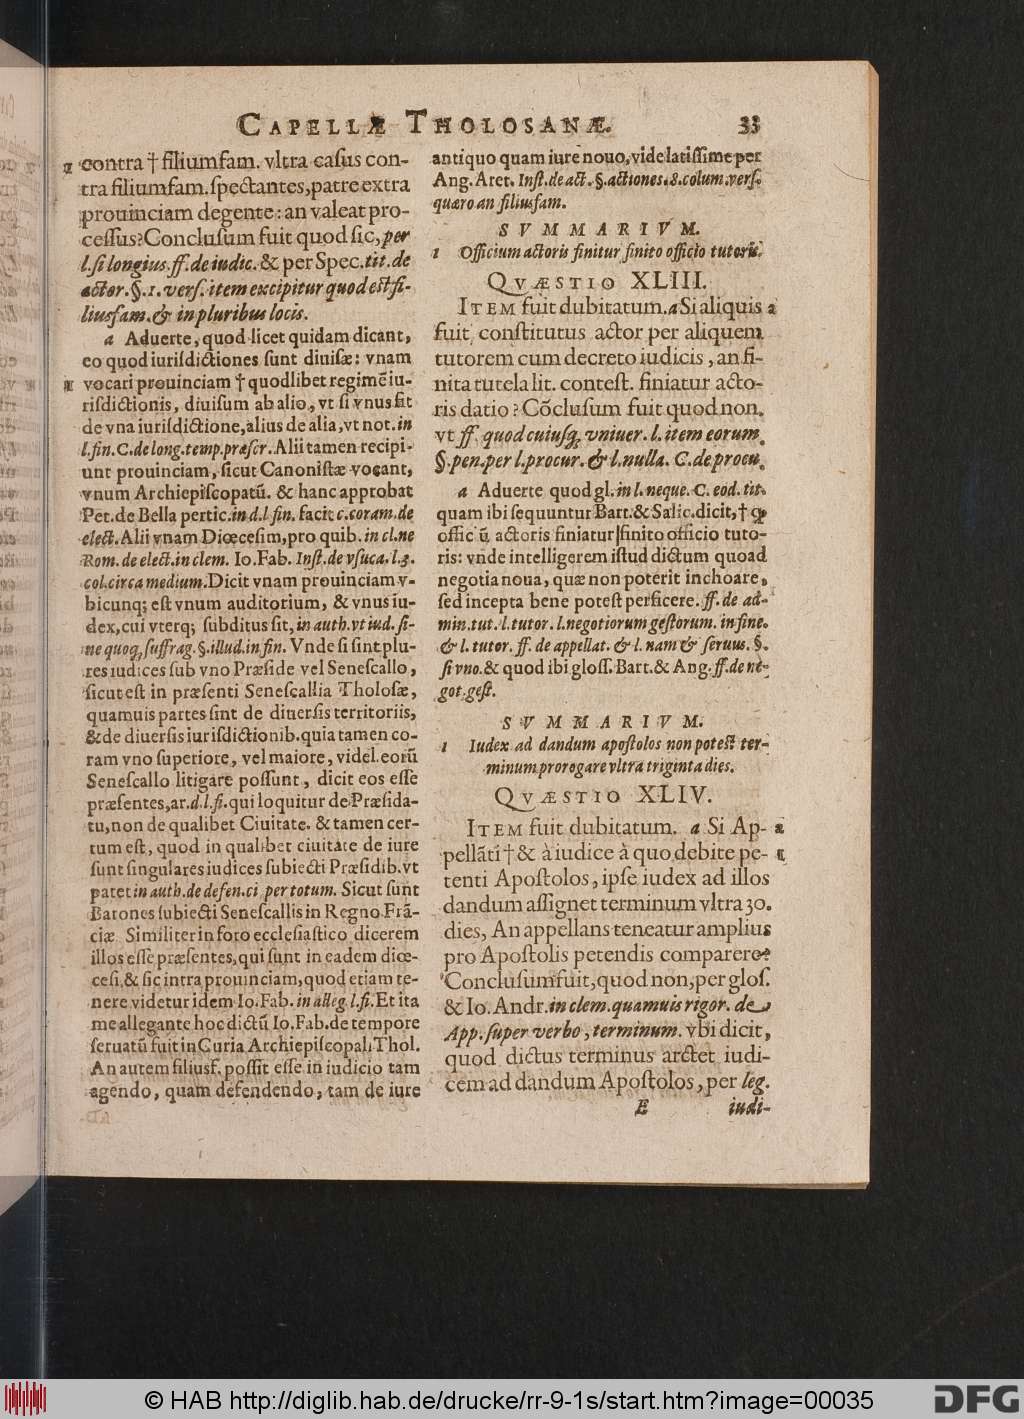 CAPELLÆ THOLOSANÆ. 33
contra † filiumfam. vltra casus con-
tra filiumfam. spectantes, patre extra
prouinciam degente: an valeat pro-
cessus? Conclusum fuit quod sic, per
l. si longius. ff. de iudic. & per Spec. tit. de
actor. §. 1. vers. item excipitur quod est fi-
liusfam. & in pluribus locis.
a Aduerte, quod licet quidam dicant,
eo quod iurisdictiones sunt diuisæ: vnam
vocari prouinciam † quodlibet regimẽ iu-
risdictionis, diuisum ab alio, vt si vnus sit
de vna iurisdictione, alius de alia, vt not. in
l. fin. C. de long. temp. præscr. Alii tamen recipi-
unt prouinciam, sicut Canonistæ vocant,
vnum Archiepiscopatũ. & hanc approbat
Pet. de Bella pertic. in d. l. fin. facit c. coram. de
elect. Alii vnam Diœcesim, pro quib. in cl. ne
Rom. de elect. in clem. Io. Fab. Inst. de vsuca. l. 3.
col. circa medium. Dicit vnam prouinciam v-
bicunq; est vnum auditorium, & vnus iu-
dex, cui vterq; subditus sit, in auth. vt iud. si-
ne quoq; suffrag. §. illud. in fin. Vnde si sint plu-
res iudices sub vno Præside vel Senescallo,
sicut est in præsenti Senescallia Tholosæ,
quamuis partes sint de diuersis territoriis,
& de diuersis iurisdictionib. quia tamen co-
ram vno superiore, vel maiore, videl. eorũ
Senescallo litigare possunt, dicit eos esse
præsentes, ar. d. l. si. qui loquitur de Præsida-
tu, non de qualibet Ciuitate. & tamen cer-
tum est, quod in qualibet ciuitate de iure
sunt singulares iudices subiecti Præsidib. vt
patet in auth. de defen. ci per totum. Sicut sunt
Barones subiecti Senescallis in Regno Frã-
ciæ Similiter in foro ecclesiastico dicerem
illos esse præsentes, qui sunt in eadem diœ-
cesi, & sic intra prouinciam, quod etiam te-
nere videtur idem Io. Fab. in alleg. l. si. Et ita
me allegante hoc dictũ Io. Fab. de tempore
seruatũ fuit in Curia Archiepiscopali Thol.
An autem filiusf. possit esse in iudicio tam
agendo, quam defendendo, tam de iure
antiquo quam iure nouo, vide latissime per
Ang. Aret. Inst. de act. §. actiones. 8. colum. vers.
quæro an filiusfam.
SVMMARIVM.
1 Officium actoris finitur finito officio tutoris.
QVÆSTIO XLIII.
ITEM fuit dubitatum. a Si aliquis a
fuit constitutus actor per aliquem
tutorem cum decreto iudicis, an fi-
nita tutela lit. contest. finiatur acto-
ris datio? Cõclusum fuit quod non.
vt ff. quod cuiusq; vniuer. l. item eorum.
§. pen. per l. procur. & l. nulla. C. de procu.
a Aduerte quod gl. in l. neque. C. eod. tit.
quam ibi sequuntur Bart. & Salic. dicit, † ꝙ
offic ũ actoris finiatur finito officio tuto-
ris: vnde intelligerem istud dictum quoad
negotia noua, quæ non poterit inchoare,
sed incepta bene potest perficere. ff. de ad-
min. tut. l. tutor. l. negotiorum gestorum. in fine.
& l. tutor. ff. de appellat. & l. nam & seruus. §.
si vno. & quod ibi gloss. Bart. & Ang. ff. de ne-
got. gest.
SVMMARIVM.
1 Iudex ad dandum apostolos non potest ter-
minum prorogare vltra triginta dies.
QVÆSTIO XLIV.
ITEM fuit dubitatum. a Si Ap- a
pellãti † & à iudice à quo, debite pe- 1
tenti Apostolos, ipse iudex ad illos
dandum assignet terminum vltra 30.
dies, An appellans teneatur amplius
pro Apostolis petendis comparere?
Conclusum fuit, quod non, per glos.
& Io. Andr. in clem. quamuis rigor. de
App. super verbo, terminum. vbi dicit,
quod dictus terminus arctet iudi-
cem ad dandum Apostolos, per leg.
E iudi-
© HAB http://diglib.hab.de/drucke/rr-9-1s/start.htm?image=00035
DFG